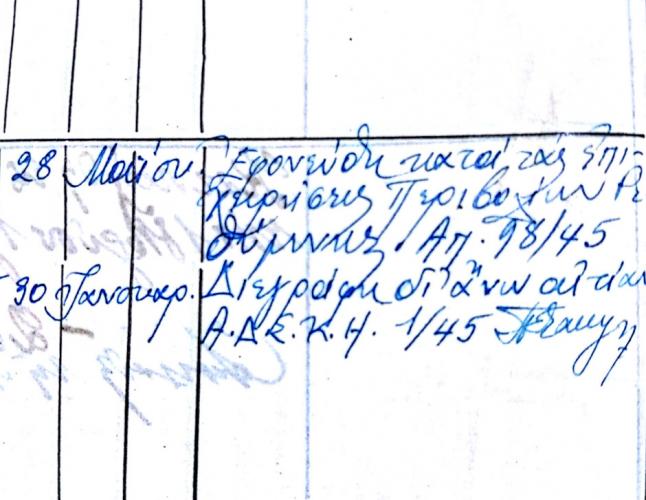 28 Μαΐου. Ἐφονεύθη κατά τάς ἐπι-
χειρήσεις Περιβολίων Ρε
θύμνης Ἀπ. 98/45
30 Ἰανουαρ. Διεγράφη δι' ἄνω αἰτίαν
Α.Δ.Ε.Κ.Η. 1/45